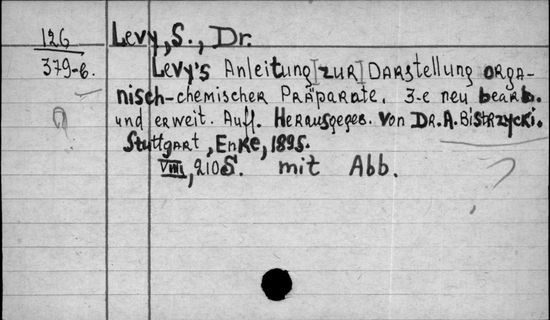 126 Levy, S., Dr.
379-6. Levy's Anleitung [zur] Darstellung orga-
nisch-chemischer Präparate. 3-e neu bearb.
und erweit. Aufl. Herausgegeb. von Dr. A. Bistrzycki.
Stuttgart, Enke, 1895.
VIII, 210 S. mit Abb.